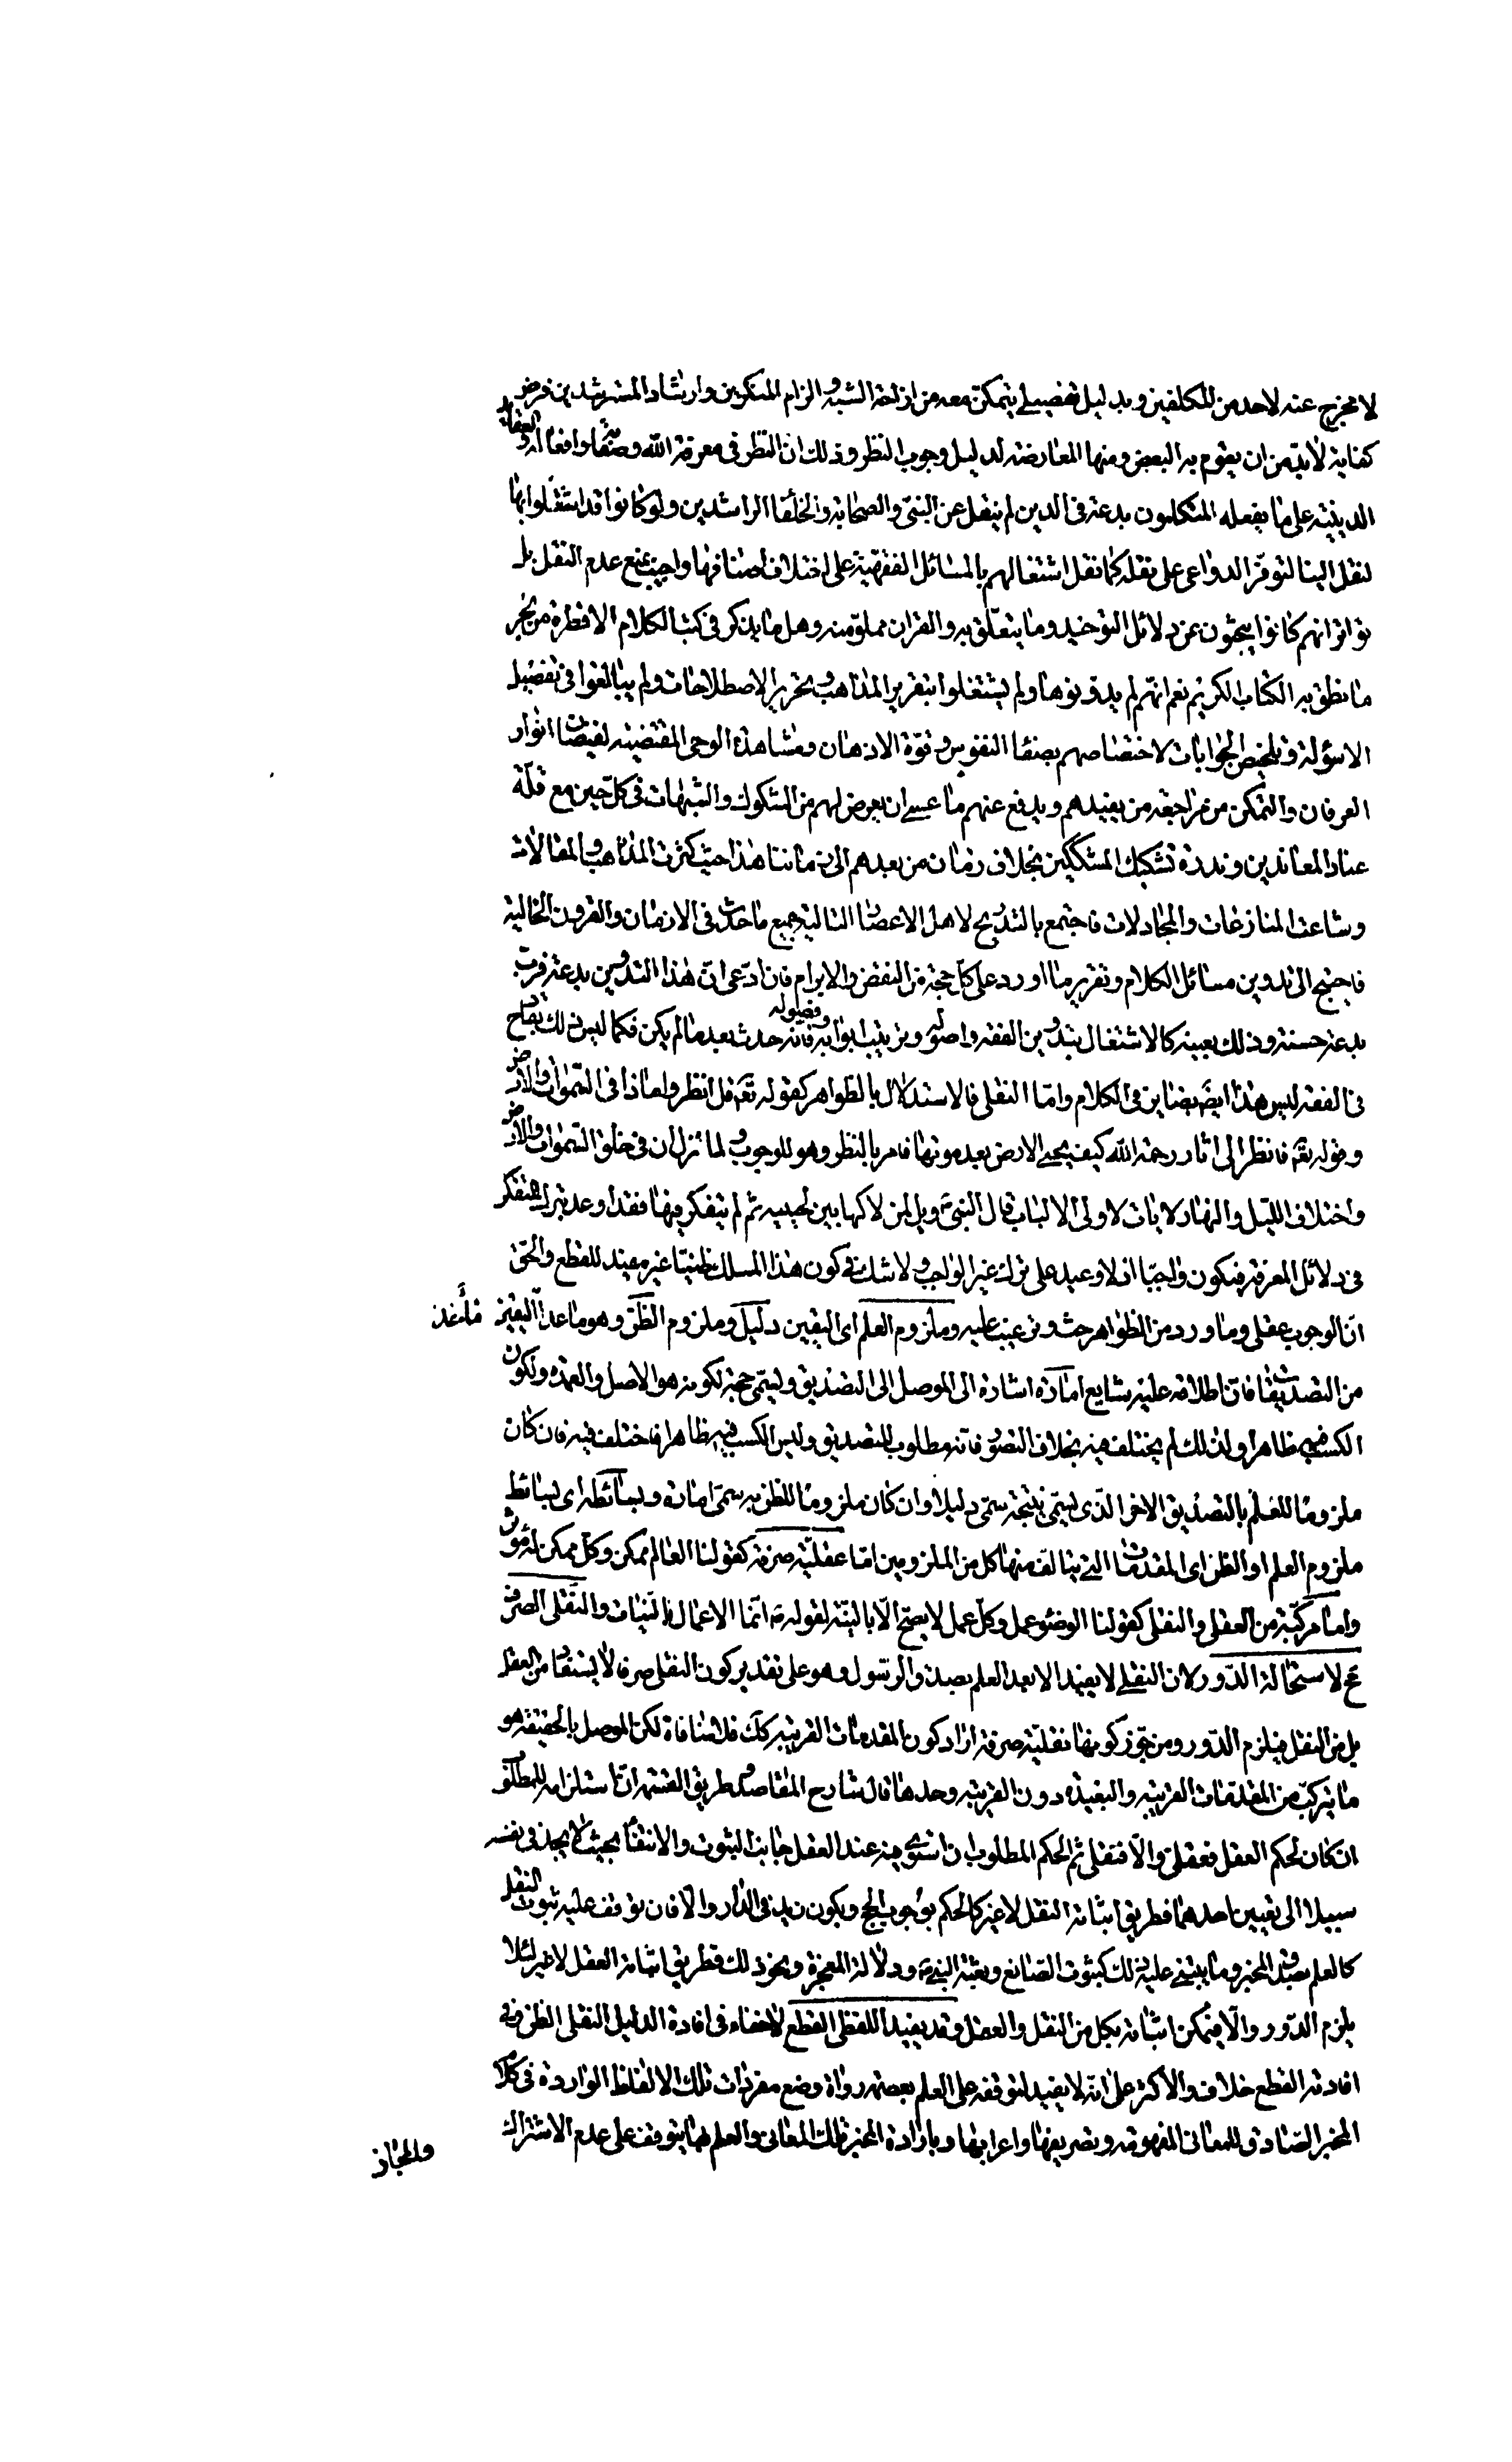 لا مخرج عنه لاحد من المكلفين وبدليل تفصيلى يتمكن معه من ازاحة الشبه والزام المنكرين وارشاد المسترشدين فرض
كفاية لا بد من ان يقوم به البعض ومنها المعارضة لدليل وجوب النظر وذلك ان النظر فى معرفة الله وصفاته وافعاله والعقائد
الدينية على ما يفعله المتكلمون بدعة فى الدين لم ينقل عن النبى والصحابة والخلفا الراشدين ولو كانوا قد اشتغلوا بها
لنقل الينا لتوفر الدواعى على نقله كما نقل اشتغالهم بالمسائل الفقهية على اختلاف اصنافها واجيب بمنع عدم النقل بل
تواتر انهم كانوا يبحثون عن دلائل التوحيد وما يتعلق به والقران مملو منه وهل ما يذكر فى كتب الكلام الا قطرة من بحر
ما نطق به الكتاب الكريم نعم انهم لم يدونوها ولم يشتغلوا بتقرير المذاهب وتحرير الاصطلاحات ولم يبالغوا فى تفصيل
الاسؤلة وتلخيص الجوابات لاختصاصهم بصفا النفوس وقوة الاذهان ومشاهدة الوحى المقتضية لفيضان انوار
العرفان والتمكن من مراجعة من يفيدهم ويدفع عنهم ما عسى ان يعرض لهم من الشكوك والشبهات فى كل حين مع قلة
عناد المعاندين وندرة تشكيك المشككين بخلاف زمان من بعدهم الى زماننا هذا حيث كثرت المذاهب والمقالات
وشاعت المنازعات والمجادلات فاجتمع بالتدريج لاهل الاعصار التالية جميع ما حدث فى الازمان والقرون الخالية
فاحتيج الى تدوين مسائل الكلام وتقرير ما اورد على كل حجة من النقض والابرام فان ادعى ان هذا التدوين بدعة فرب
بدعة حسنة وذلك بعينه كالاشتغال بتدوين الفقه واصوله وترتيب ابوابه وفصوله فانه حدث بعد ما لم يكن فكما ليس ذلك بقادح
فى الفقه ليس هذا ايضا بضاير فى الكلام واما النقلى فالاستدلال بالظواهر كقوله تعه قل انظروا ماذا فى السموات والارض
وقوله تعه فانظر الى اثار رحمة الله كيف يحيى الارض بعد موتها فامر بالنظر وهو للوجوب ولما نزل ان فى خلق السموات والارض
واختلاف الليل والنهار لايات لاولى الالباب قال النبى ويل لمن لاكها بين لحييه ثم لم يتفكر فيها فقد اوعد بترك التفكر
فى دلائل المعرفة فيكون واجبا اذ لا وعيد على ترك غير الواجب ولا شك فى كون هذا المسلك ظنيا غير مفيد للقطع والحق
ان الوجوب عقلى وما ورد من الظواهر حث وترغيب عليه وملزوم العلم اى اليقين دليل وملزوم الظن وهو ما عدا اليقين
من التصديقات فان اطلاقه عليه شايع امارة اشارة الى الموصل الى التصديق ويسمى حجة لكونه هو الاصل والعمدة ولكون
الكسب فيه ظاهرا ولذلك لم يختلف فيه بخلاف التصور فانه مطلوب للتصديق وليس الكسب فيه ظاهرا فاختلف فيه فان كان
ملزوما للعلم بالتصديق الاخر الذى يسمى نتيجة سمى دليلا وان كان ملزوما للظن به سمى امارة وبسائطه اى بسائط
ملزوم العلم او الظن اى المقدمات التى يتالف منها كل من الملزومين اما عقلية صرفة كقولنا العالم ممكن وكل ممكن له مؤثر
واما مركبة من العقلى والنقلى كقولنا الوضوء عمل وكل عمل لا يصح الا بالنية لقوله انما الاعمال بالنيات والنقلى الصرف
مح لاستحالة الدور لان النقلى لا يفيد الا بعد العلم بصدق الرسول وهو على تقدير كون النقلى صرفا لا يستفاد من العقل
بل من النقل فيلزم الدور ومن جوز كونها نقلية صرفة اراد كون المقدمات القريبة كك فلا منافاة لكن الموصل بالحقيقة هو
ما يتركب من المقدمات القريبة والبعيدة دون القريبة وحدها قال شارح المقاصد وطريق القسمة ان استلزامه للمطلوب
ان كان لحكم العقل فعقلى والا فنقلى ثم الحكم المطلوب ان استوى فيه عند العقل جانبا الثبوت والانتفا بحيث لا يجد فى نفسه
سبيلا الى تعيين احدهما فطريق اثباته النقل لا غير كالحكم بوجوب الحج وبكون زيد فى الدار والا فان توقف عليه ثبوت النقل
كالعلم بصدق المخبر وما يبتنى عليه ذلك كثبوت الصانع وبعثة النبى ودلالة المعجزة ونحو ذلك فطريق اثباته العقل لا غير لئلا
يلزم الدور والا فيمكن اثباته بكل من النقل والعقل وقد يفيد اللفظى القطع لا خفاء فى افادة الدليل النقلى الظن وفى
افادته القطع خلاف والاكثر على انه لا يفيد لتوقفه على العلم بعصمة رواة وضع مفردات تلك الالفاظ الواردة فى كلام
المخبر الصادق للمعانى المفهومة وتصريفها واعرابها وبارادة المخبر تلك المعانى والعلم بها يتوقف على عدم الاشتراك
والمجاز